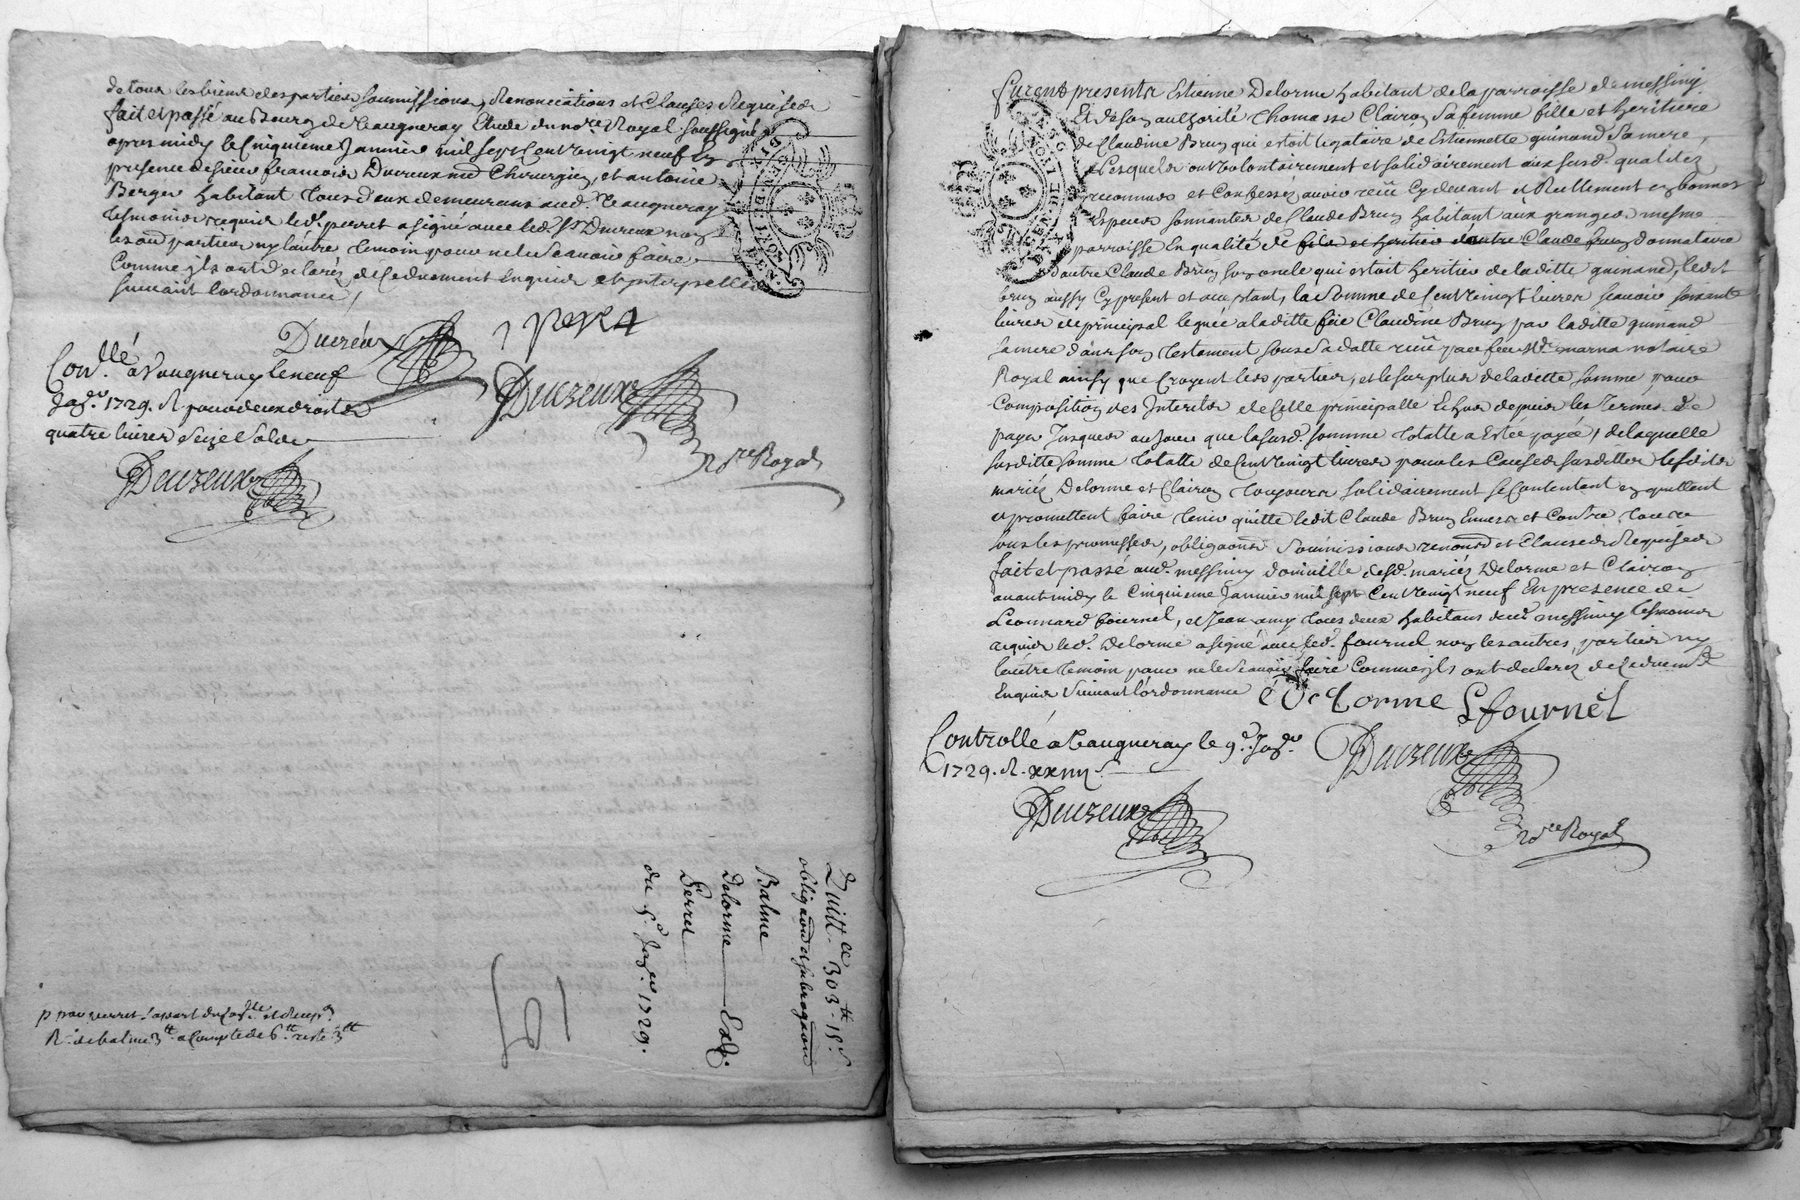 de tous les biens des parties soumissions, Renonciations et Clauses Requises
fait et passé au Bourg de Vaugneray Etude du nore. Royal soussigné
apres midy le Cinquieme Janvier mil sept Cent vingt neuf En
presence de sieur francois Ducreux me Chirurgien, et antoine
Berger habitant tous deux demeurans aud. Vaugneray
tesmoins requis led. perret a signé avec led. Sr. Ducreux non
les aud. parties ny l'autre temoin pour ne le scavoir faire
Comme ils ont declarés de Ce duement enquis et interpellés
suivant l'ordonnance /
Ducreux
perret
Conllé a Vaugneray le neuf
Janer. 1729. R pour deux droits
quatre livres seize sols
Ducreux
Ducreux
Nre Royal
Quittce 303tt-15s
obligaon et subrogaon
Balme
Delorme Exp.
Perret
du 5e Janer. 1729.
R. de balme 3tt. a Compte de 6tt. reste 3tt
furent presents Estienne Delorme habitant de la parroisse de messimy
Et de son authorité Thomasse Clairon sa femme fille et heritiere
de Claudine Brun qui estoit legataire de Estiennette guinand sa mere,
Lesquels ont volontairement et solidairement aux susd. qualités
reconnus et Confessés avoir reçû Cy devant et Reellement en bonnes
Especes sonnantes de Claude Brun habitant aux granges mesme
parroisse En qualité de fils et heritier d'autre Claude brun donnataire
d'autre Claude Brun son oncle qui estoit heritier de laditte guinand, ledit
brun aussy Cy present et acceptant, la somme de Cent vingt livres scavoir soixante
livres de principal leguée a laditte feüe Claudine Brun par laditte guinand
sa mere dans son testament sous sa datte reçû par feu Me. marna notaire
Royal ainsy que Croyent les parties, et le surplus de laditte somme pour
Composition des Interets de Celle principalle Echus depuis les termes de
payer Jusques au jour que lasusd. somme totalle a Estée payée, de laquelle
susditte somme totalle de Cent vingt livres pour les Causes susdittes lesdits
mariés Delorme et Clairon toujours solidairement se Contentent en quittent
et promettent faire tenir quitte ledit Claude Brun Envers et Contre tous
sous les promesses, obligaons soumissions renonons et Clauses Requises
fait et passé aud. messimy domicille desd. mariés Delorme et Clairon
avant midy le Cinquieme Janvier mil sept Cent vingt neuf En presence de
Leonnard fournel, et Jean amy tous deux habitans dud. messimy tesmoins
requis led. Delorme a signé avec led. fournel non les autres parties ny
l'autre temoin pour ne le scavoir faire Comme ils ont declarés de Ce duement
Enquis suivant l'ordonnance
E De lorme L fournel
Controllé a Vaugneray le 9e. Janer.
1729. R. xxiiii s.
Ducreux
Ducreux
Nre Royal